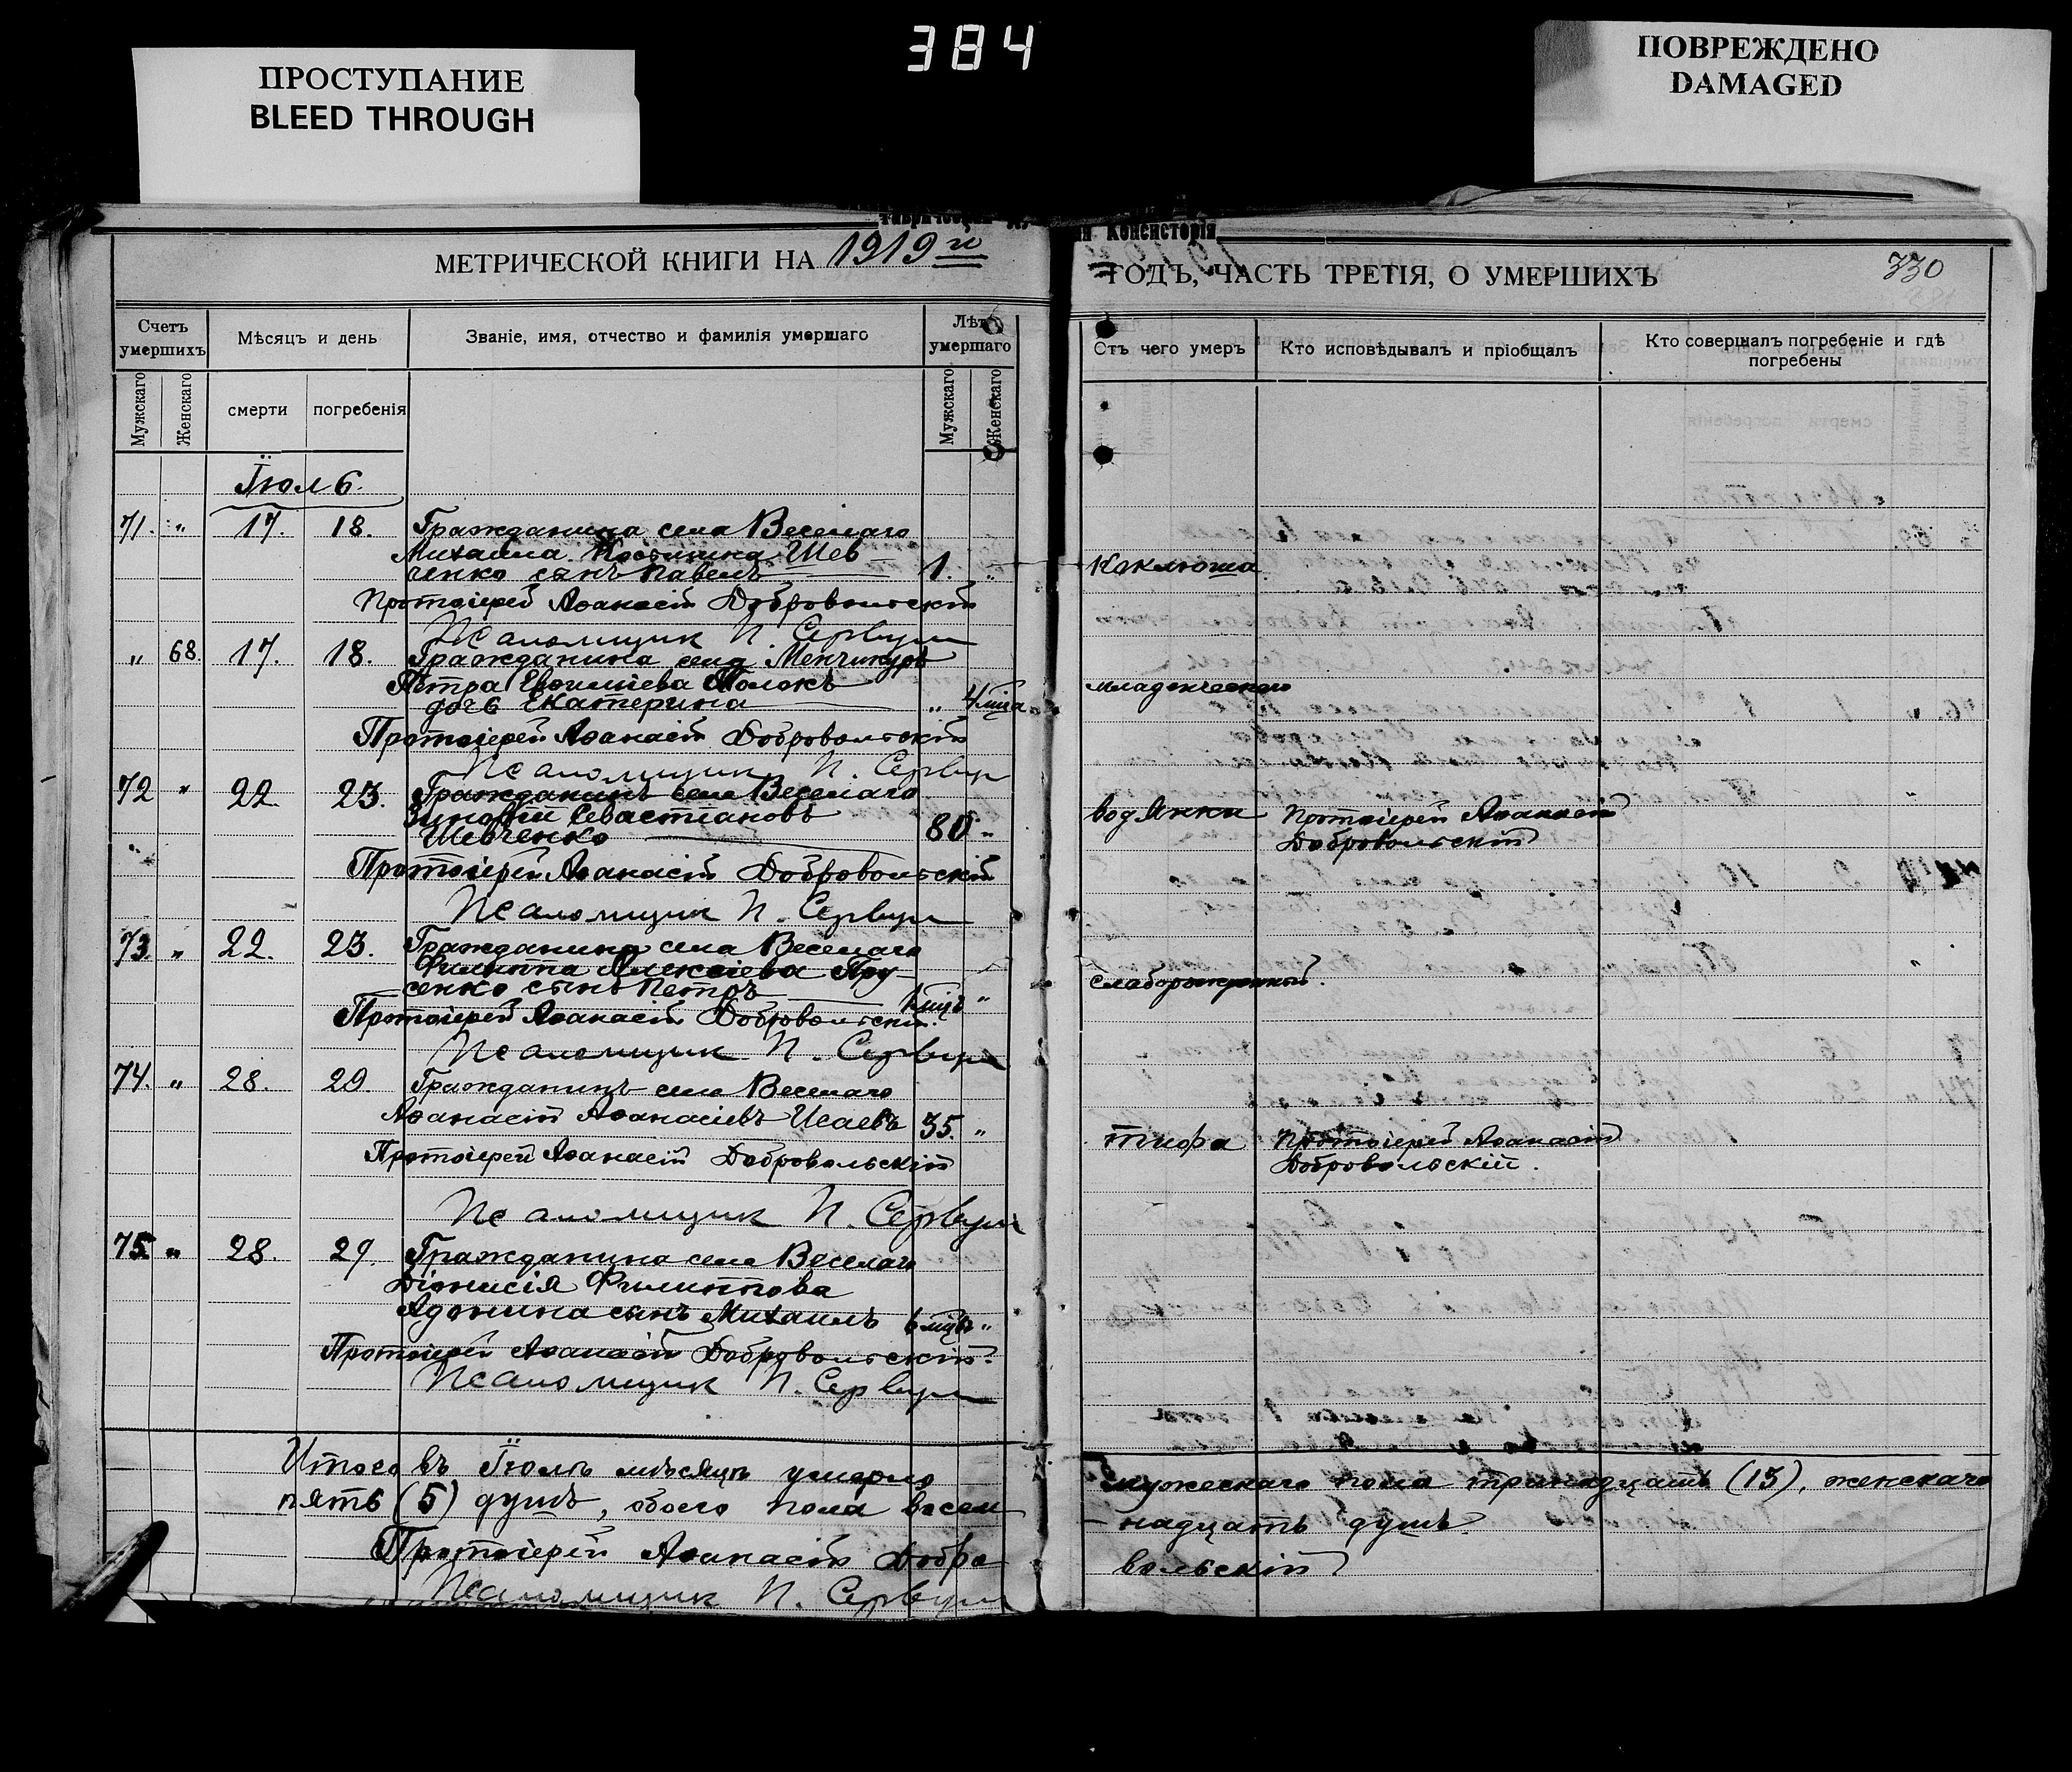 384
ПРОСТУПАНИЕ
BLEED THROUGH
ПОВРЕЖДЕНО
DAMAGED
Консисторія
МЕТРИЧЕСКОЙ КНИГИ НА 1919 го
ГОДЪ, ЧАСТЬ ТРЕТІЯ, О УМЕРШИХЪ
330
Счетъ умершихъ
Мѣсяцъ и день
Званіе, имя, отчество и фамилія умершаго
Лѣта умершаго
Отъ чего умеръ
Кто исповѣдывалъ и пріобщалъ
Кто совершалъ погребеніе и гдѣ погребены
Мужскаго
Женскаго
смерти
погребенія
Мужскаго
Женскаго
Іюль
71. " 17. 18. Гражданина села Веселаго
Михаила Шев
ченко сынъ Павелъ 1. " Коклюша
Протоіерей Аѳанасій Добровольскій
Псаломщик П. Сервули
" 68. 17. 18. Гражданина села Менчикуръ
Петра Евѳиміева Толокъ
дочь Екатерина " 4 мца младенческаго
Протоіерей Аѳанасій Добровольскій
Псаломщик П. Сервули
72 " 22. 23. Гражданинъ села Веселаго
Зиновій Севастіановъ
Шевченко 80 " водянки Протоіерей Аѳанасій
Добровольскій
Протоіерей Аѳанасій Добровольскій
Псаломщик П. Сервули
73. " 22. 23. Гражданина села Веселаго
Филиппа Алексіева
сенко сынъ Петръ 1 мцъ " слаборожденный.
Протоіерей Аѳанасій Добровольскій.
Псаломщик П. Сервули
74. " 28. 29. Гражданинъ села Веселаго
Аѳанасій Аѳанасіевъ Исаевъ 35. " тифа Протоіерей Аѳанасій
Добровольскій.
Протоіерей Аѳанасій Добровольскій
Псаломщик П. Сервули
75. " 28. 29. Гражданина села Веселаго
Діонисія Филиппова
Адонина сынъ Михаилъ 6 мцвъ "
Протоіерей Аѳанасій Добровольскій.
Псаломщик П. Сервули
Итого въ Іюлѣ мѣсяцѣ умерло мужескаго пола тринадцать (13), женскаго
пять (5) душъ, обоего пола восем надцать душъ.
Протоіерей Аѳанасій Добро вольскій
Псаломщик П. Сервули